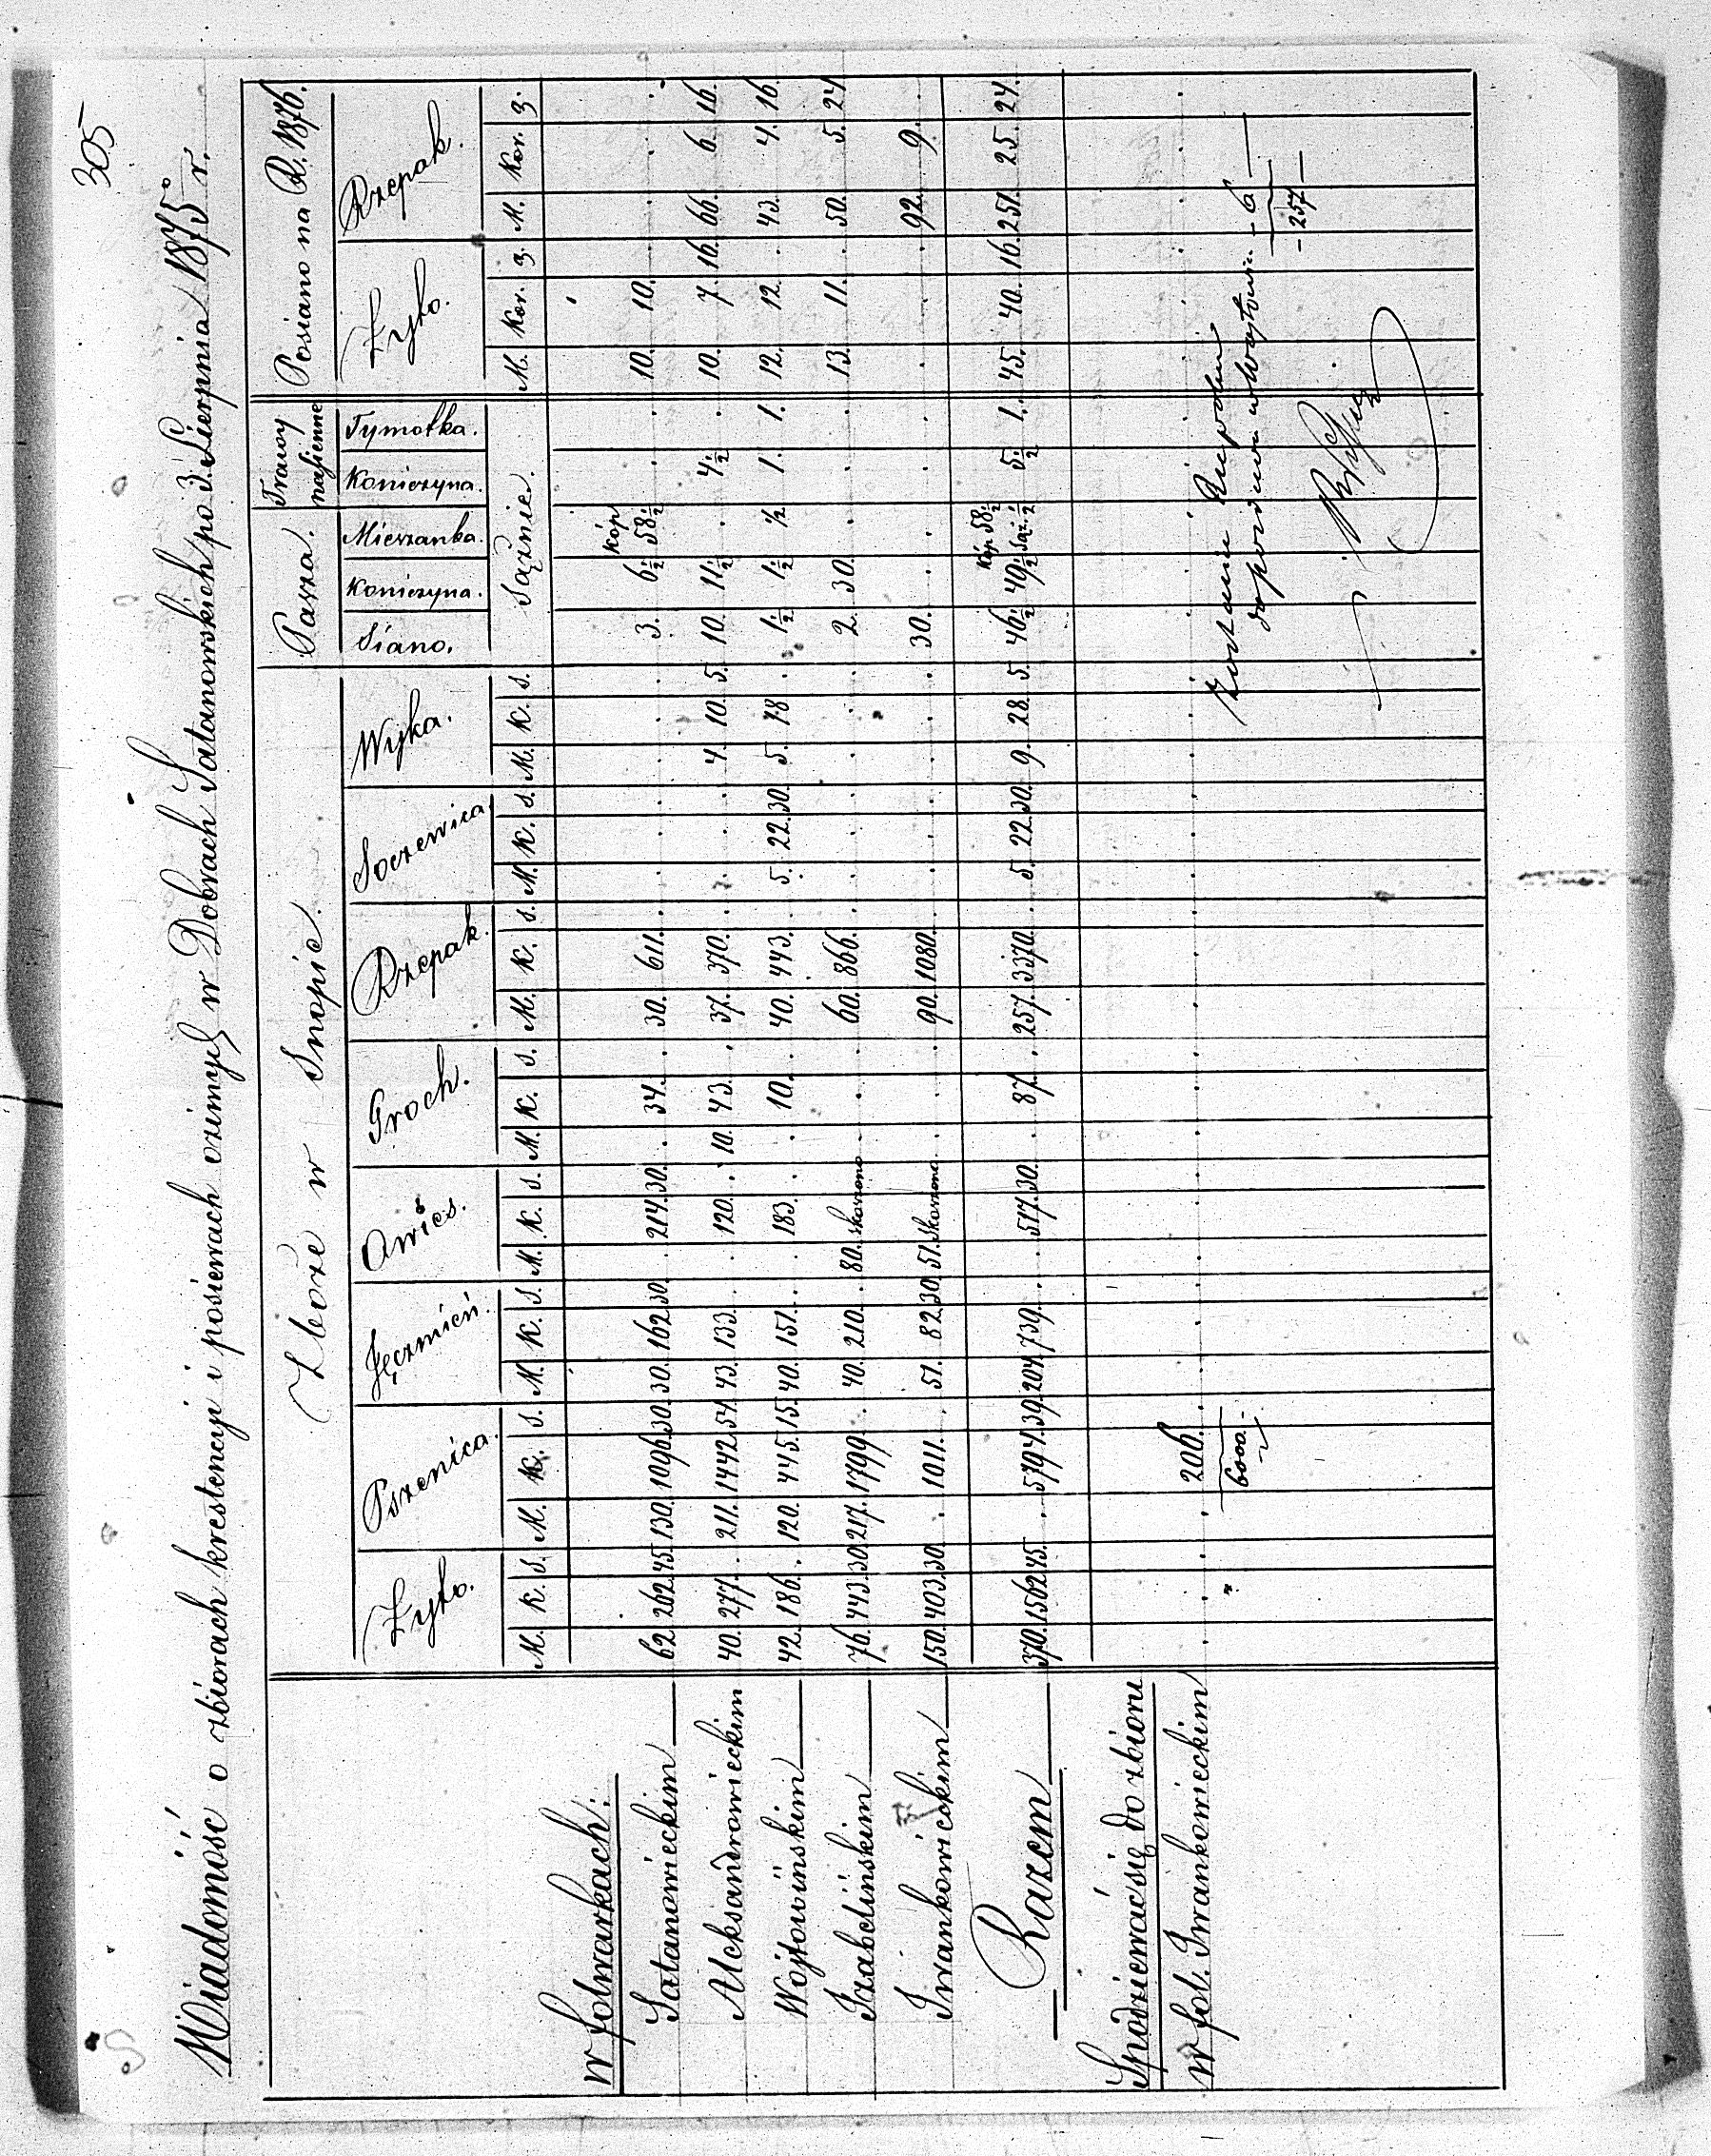 305
Wiadomość o zbiorach krestencyi i posiewach ozimych w Dobrach Satanowskich po 3. Sierpnia 1875 r.
Zboże w Snopie. Pasza. Trawy nasienne Posiano na R. 1876.
Żyto. Pszenica. Jęczmień. Owies. Groch. Rzepak. Soczewica Wyka. Siano. Koniczyna. Mieszanka. Koniczyna. Tymotka. Żyto. Rzepak.
M. K. S. M. K. S. M. K. S. M. K. S. M. K. S. M. K. S. M. K. S. M. K. S. Sążnie. M. Kor. 3. M. Kor. 3.
w folwarkach:
Satanowieckim 62. 262. 45. 130. 1096. 30. 30. 162 30. . 214. 30. . 34. . 30. 611. . . . . . . . 3. 6 1/2 Kóp 58 1/2 . . 10. 10. . . . .
Aleksandrowieckim 40. 277. . 211. 1442. 54. 43. 133. . . 120. . 10. 43. . 37. 370. . . . . 4. 10. 5. 10. 11 1/2 . 4 1/2 . 10. 7. 16. 66. 6. 16.
Wojtowińskim 42. 186. . 120. 445. 15. 40. 151. . . 183. . . 10. . 40. 443. . 5. 22. 30. 5. 18 . 1 1/2 1 1/2 1/2 1. 1. 12. 12. . 43. 4. 16.
Izabelińskim 76. 443. 30. 217. 1799. . 40. 210. . 80. skoszono . . . 60. 866. . . . . . . . 2. 30. . . . 13. 11. . 50. 5. 24.
Iwankowieckim 150. 403. 30. . 1011. . 51. 82 30. 51. skoszono . . . 90. 1080. . . . . . . . 30. . . . . . . . 92. 9. .
Razem 370. 1562 45. . 5794. 39. 204. 739. . . 517. 30. . 87. . 257. 3370. . 5. 22. 30. 9. 28. 5. 46 1/2 49 1/2 Kóp 58 1/2 Saż. 1/2 5 1/2 1. 45. 40. 16. 251. 25. 24.
Spodziewać się do zbioru
w fol. Iwankowieckim 206.
6000.
w Wojtowin. - 6 -
- 257 -